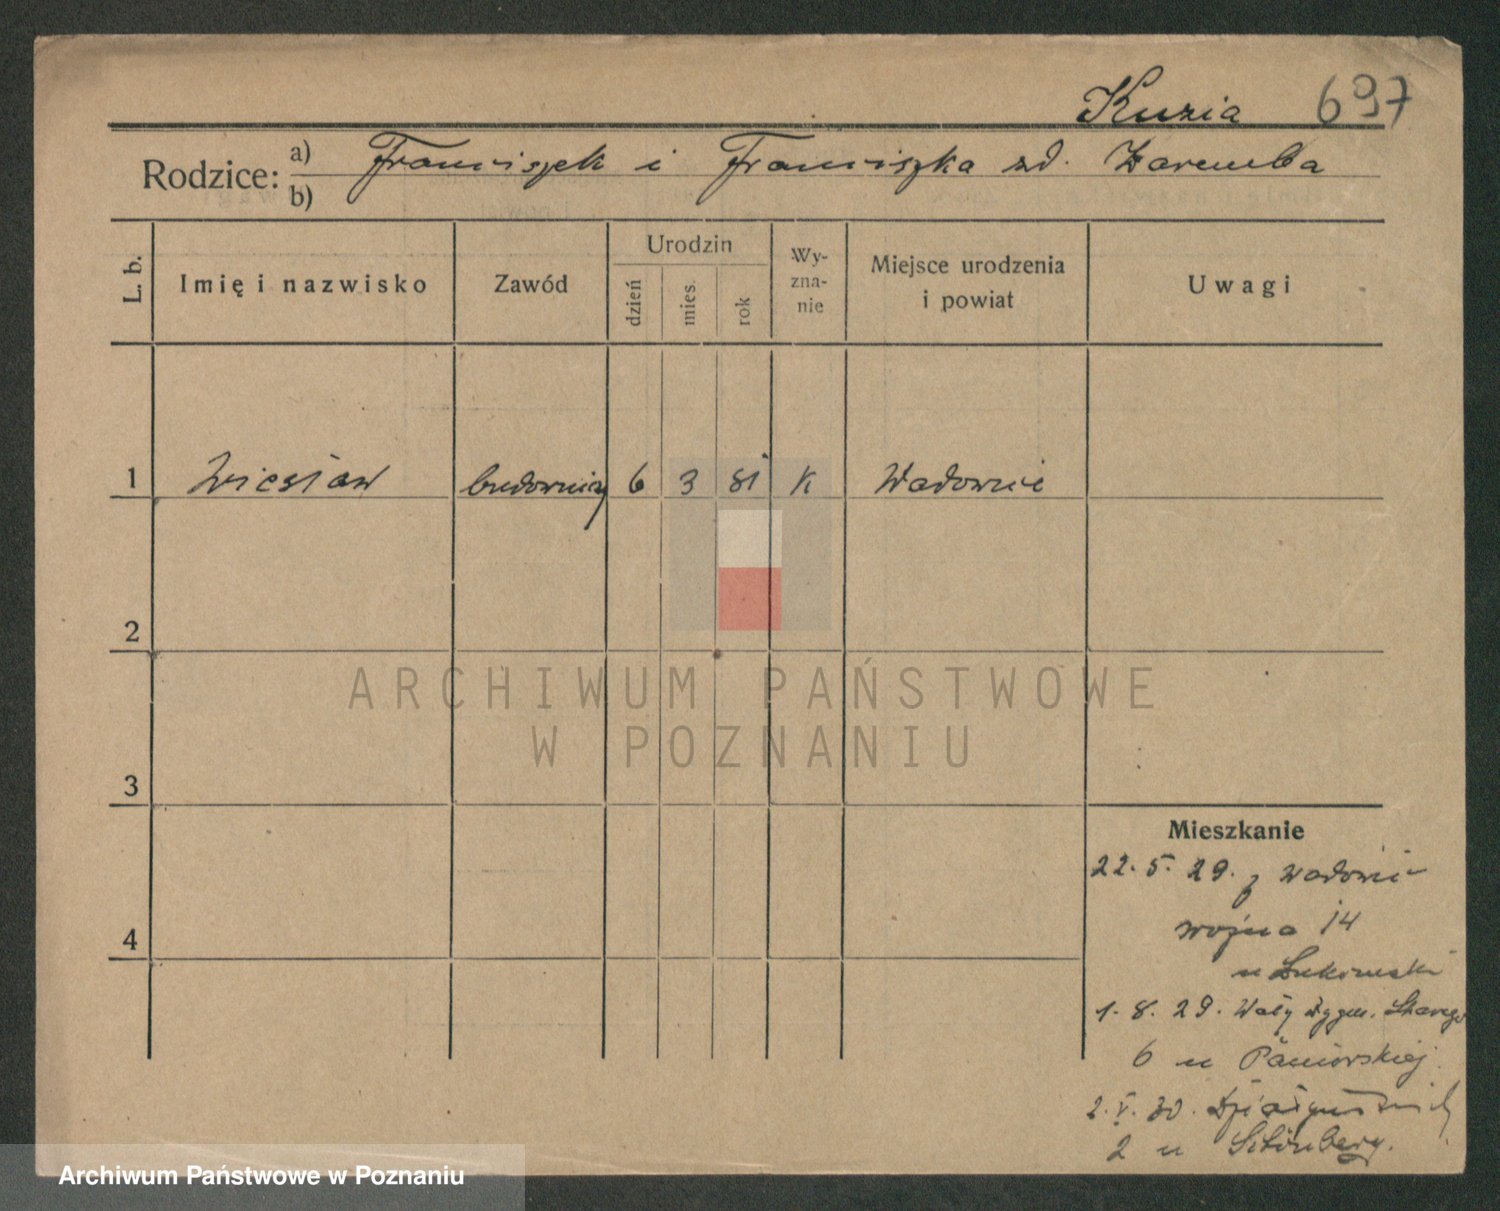 Kuzia 697
Rodzice: a) Franciszek i Franciszka zd. Zaremba
b)
L. b. Imię i nazwisko Zawód Urodzin dzień mies. rok Wy-zna-nie Miejsce urodzenia i powiat Uwagi
1 Wiesław budowniczy 6 3 81 K Wadowice
2
3
4
Mieszkanie
22. 5. 29. z Wadowic
14
u
1. 8. 29. Wały Zygm. Starego
6 u
2. V. 30. Działyńskich
2 u
ARCHIWUM PAŃSTWOWE
W POZNANIU
Archiwum Państwowe w Poznaniu